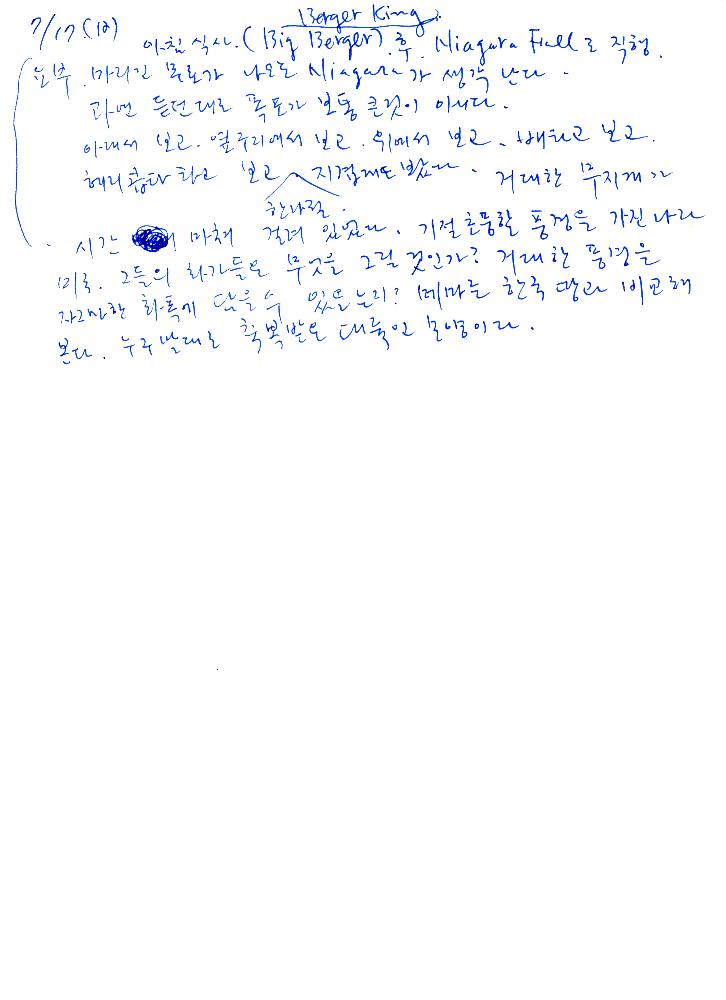 Berger King.
7/17 (12) 아침 식사. (Big Berger) 후. Niagara Fall로 직행.
마리린 몬로가 나오는 Niagara가 생각 난다.
과연 듣던대로 폭포가 보통 큰것이 아니다.
아래서 보고. 옆구리에서 보고. 위에서 보고. 배타고 보고.
헤리콥타 타고 보고 지겹게도 봤다. 거대한 무지개가
한나절.
시간 마춰 걸려 있었다. 기절초풍할 풍경을 가진 나라
미국. 그들의 화가들은 무엇을 그릴 것인가? 거대한 풍경을
자그만한 화폭에 담을 수 있을런지? 메마른 한국 땅과 비교해
본다. 누구 말대로 축복받은 대륙인 모양이다.